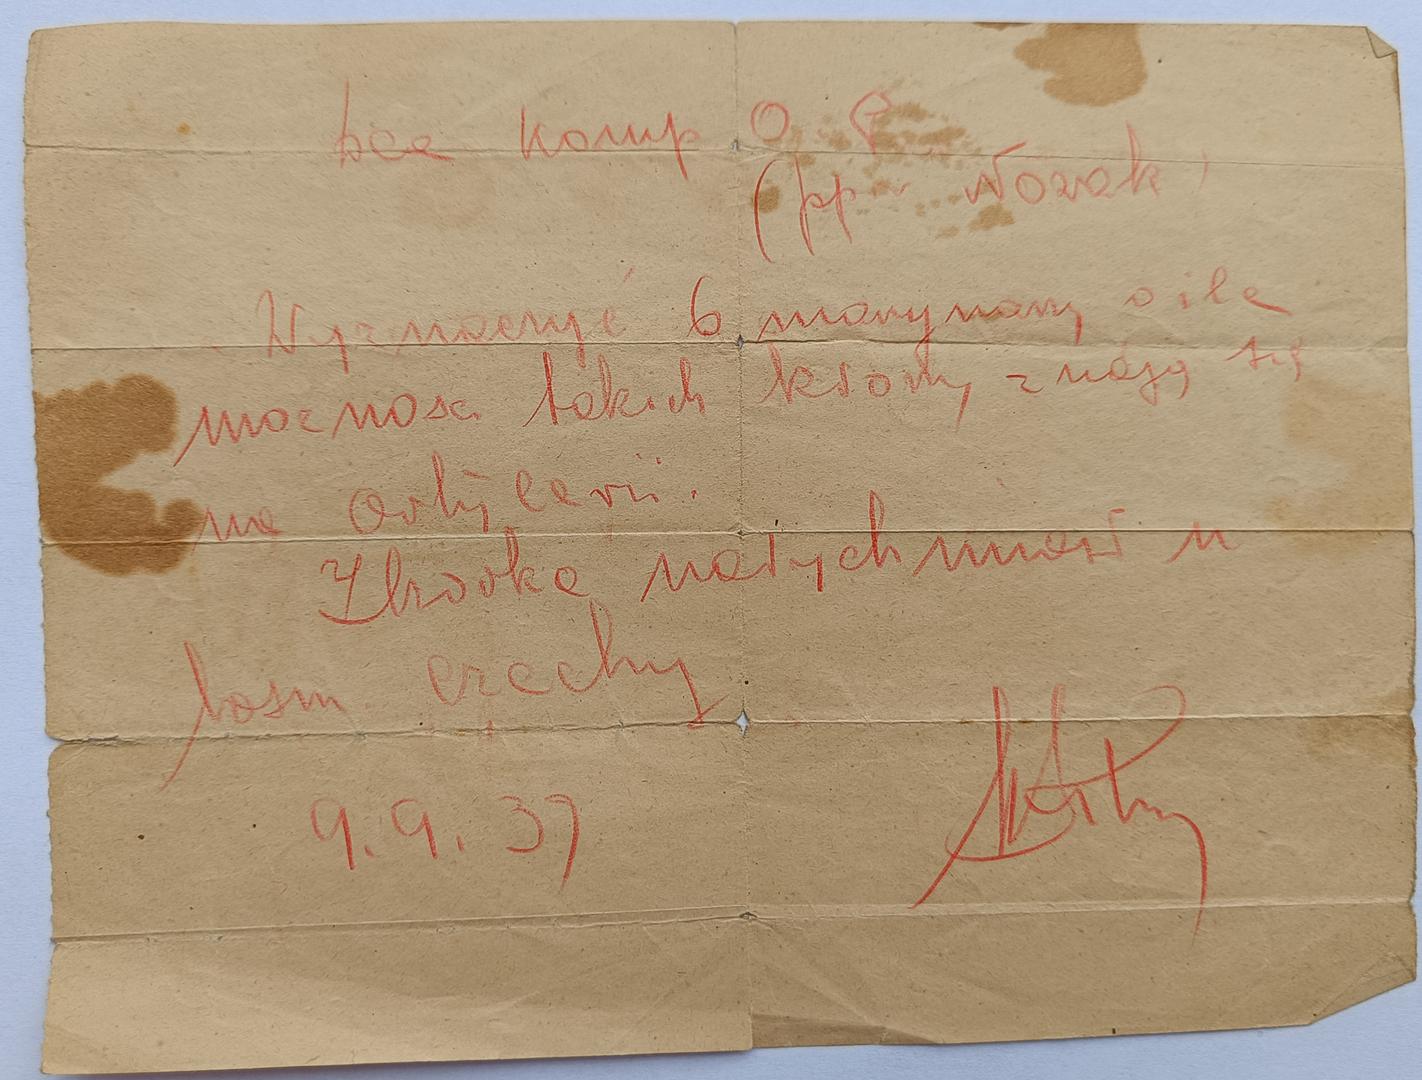 komp O P
(ppr Nowak)
Wyznaczyć 6 marynarzy o ile
możności takich którzy znają się
na Artylerii.
Zbiórka natychmiast u
bosm czechy
9.9.39